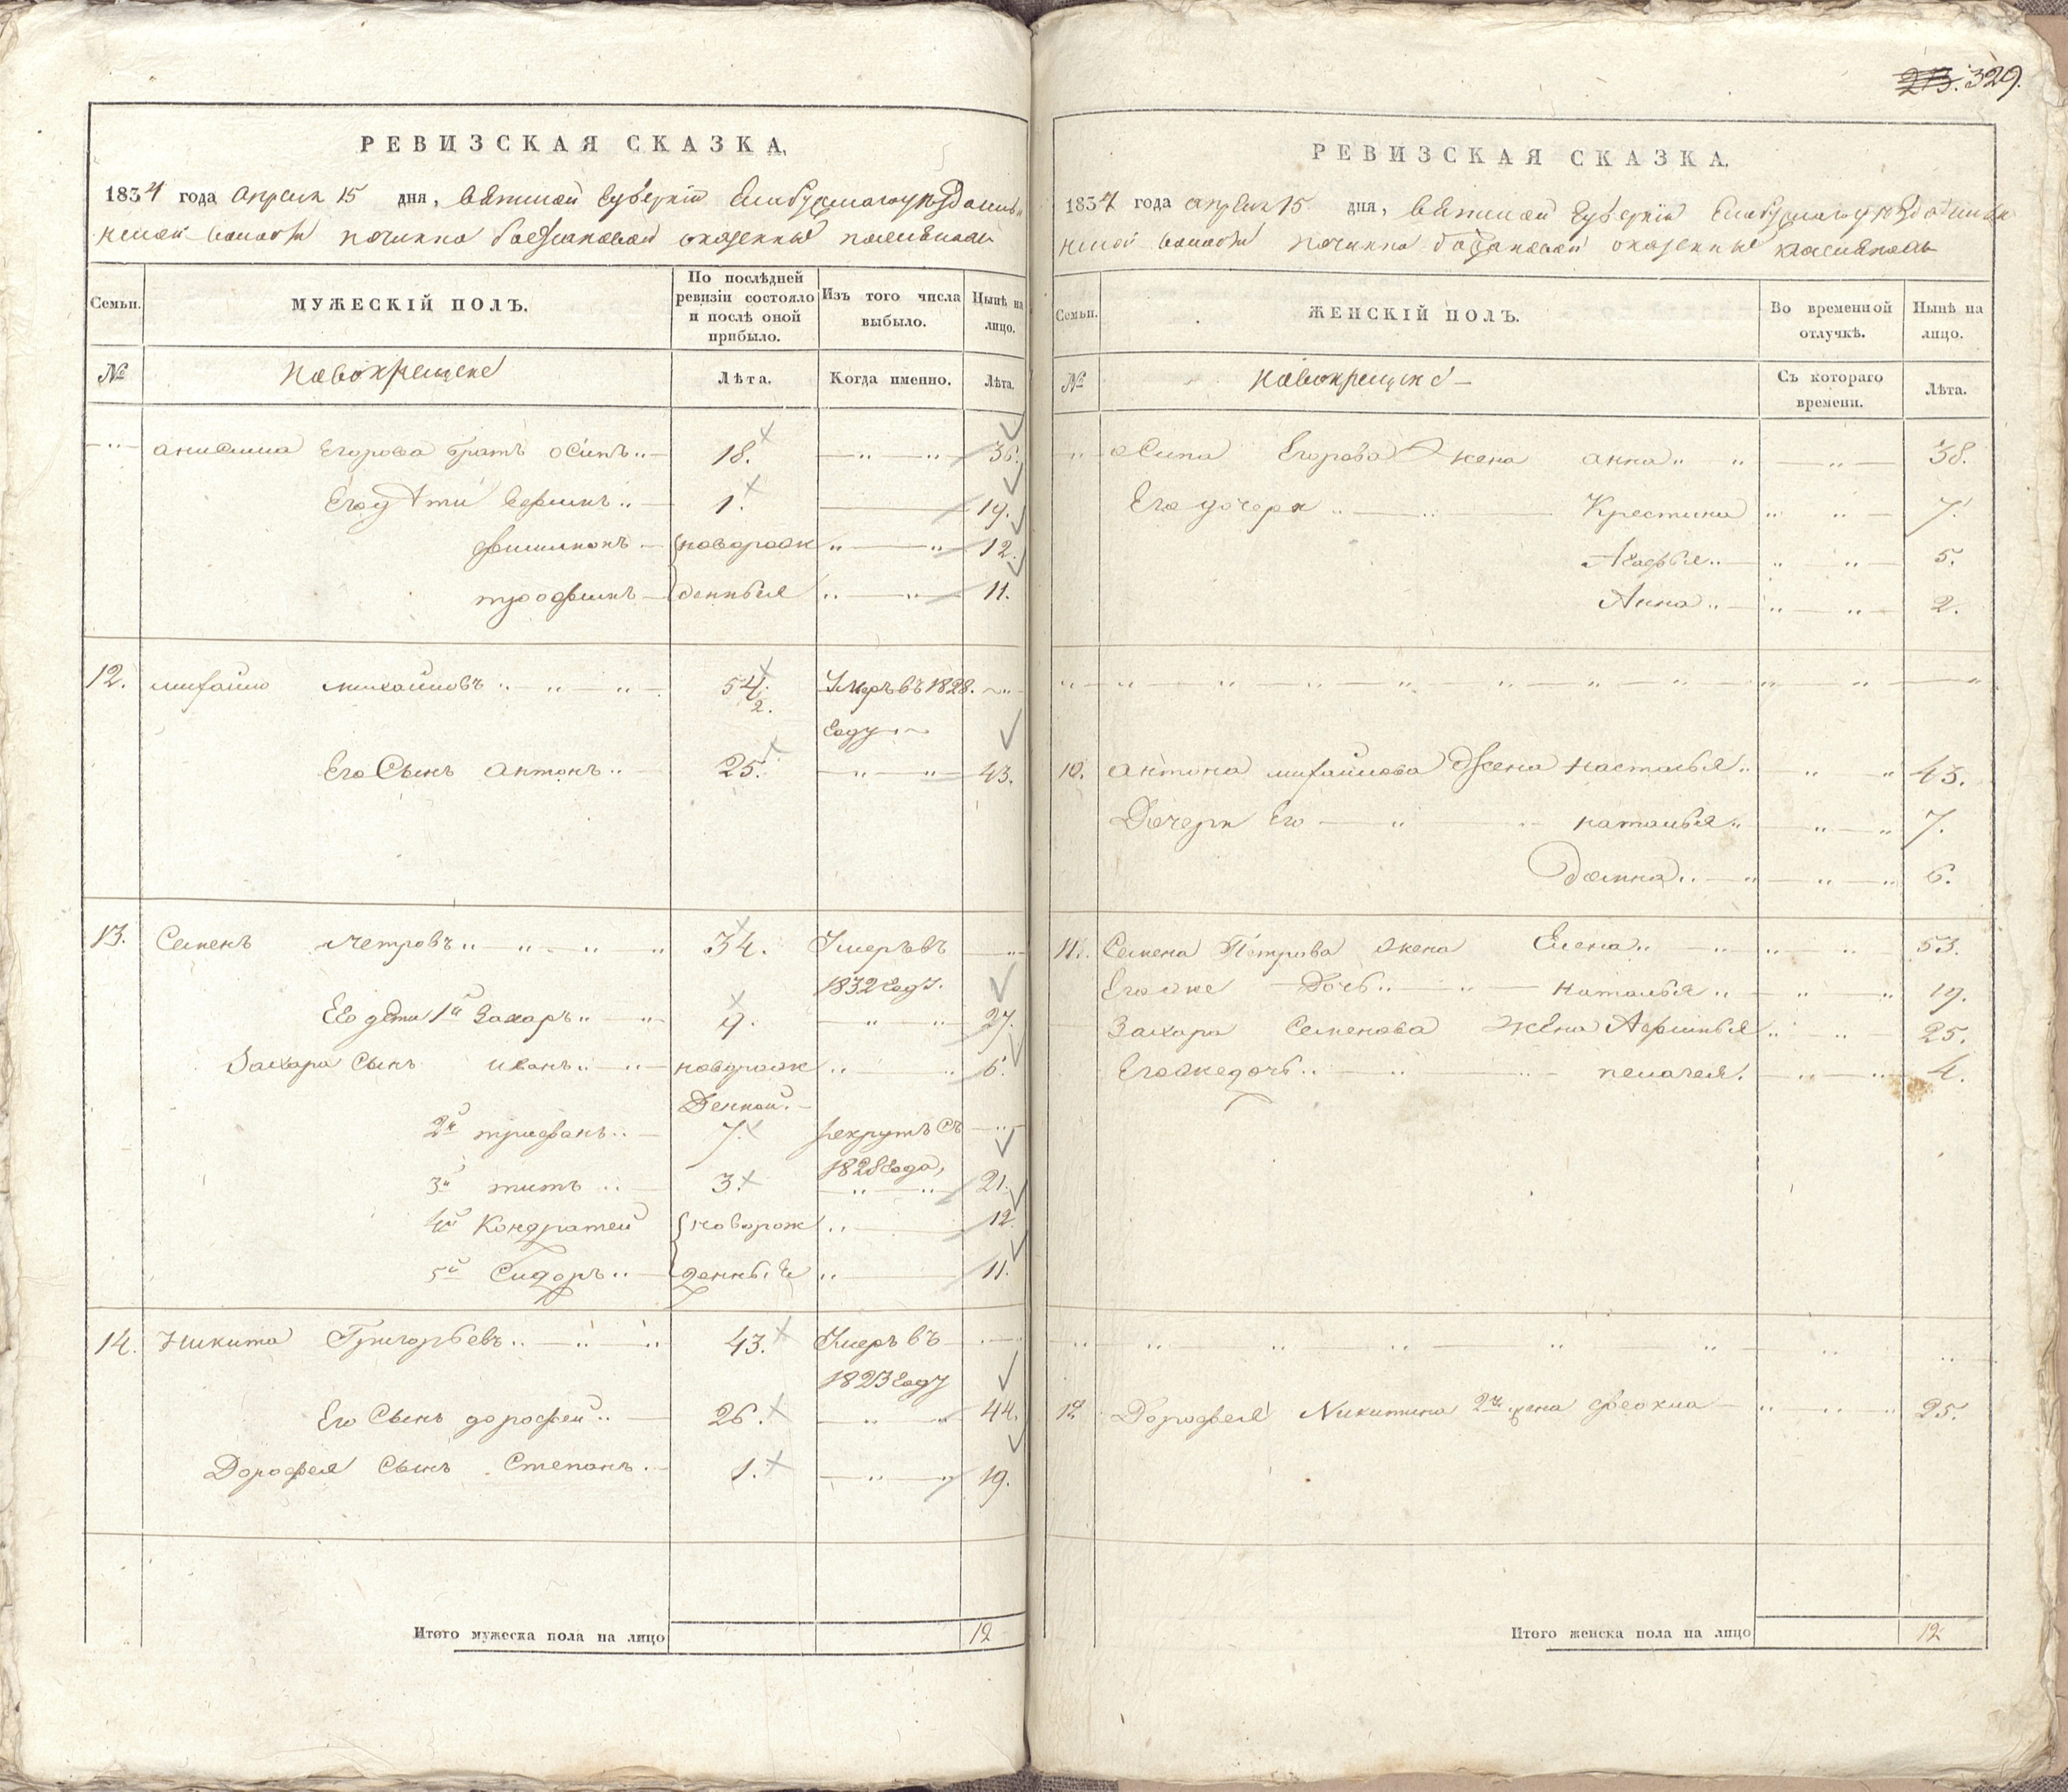 213. 329.
РЕВИЗСКАЯ СКАЗКА,
1834 года апреля 15 дня, Вятской губернiи Елабужскаго уезда
волости починка
Семьи.
МУЖЕСКIЙ ПОЛЪ.
По послѣдней ревизiи состояло и послѣ оной прибыло.
Изъ того числа выбыло.
Нынѣ на лицо.
№
новокрещене
Лѣта.
Когда именно.
Лѣта.
Анисима Егорова братъ осипъ 18. 36.
Его дѣти 1. 19.
филимонъ новорож 12.
трофимъ денныя 11.
12. михайло михайловъ 54. Умеръ въ 1828.
2.
году
Его Сынъ антонъ 25. 43.
13. Семенъ петровъ 34. Умеръ въ
1832 году.
Его дѣти 1й Захаръ 9. 27.
Захара Сынъ иванъ новорож 6.
денной.
2й трифанъ 7. рекрутъ съ
1828 года,
3й титъ 3. 21.
4й Кондратей новорож 12.
5й Сидоръ денные 11.
14. Никита Григорьевъ 43. Умеръ въ
1823 году
Его Сынъ дорофеи 26. 44.
Дорофея Сынъ Степанъ 1. 19.
Итого мужеска пола на лицо 12
РЕВИЗСКАЯ СКАЗКА.
1834 года апреля 15 дня, Вятской губернiи Елабужскаго уезда
волости починка
Семьи.
ЖЕНСКIЙ ПОЛЪ.
Во временной отлучкѣ.
Нынѣ на лицо.
№
новокрещене
Съ котораго времени.
Лѣта.
осипа Егорова жена анна 38.
Его дочери Крестина 7.
Агафья 5.
Анна 2.
10. антона михайлова жена насталья 43.
Дочери Его наталья 7.
Домна 6.
11. Семена Петрова жена Елена 53.
Его же Дочь наталья 19.
Захара Семенова жена 25.
Его же дочь пелагея. 4.
12. Дорофея Никитина 2я жена феокла 25.
Итого женска пола на лицо 12